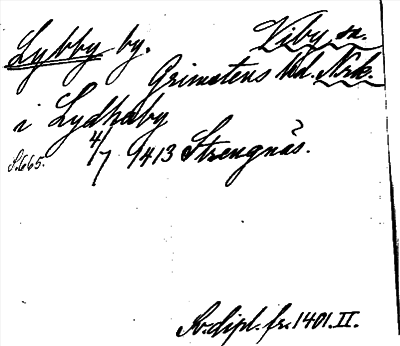 Lybby by. Viby sn.
Grimstens hd. Nrk.
i Lydhaby
4/7 1413 Strengnäs.
S. 665.
Sv. dipl. fr. 1401. II.